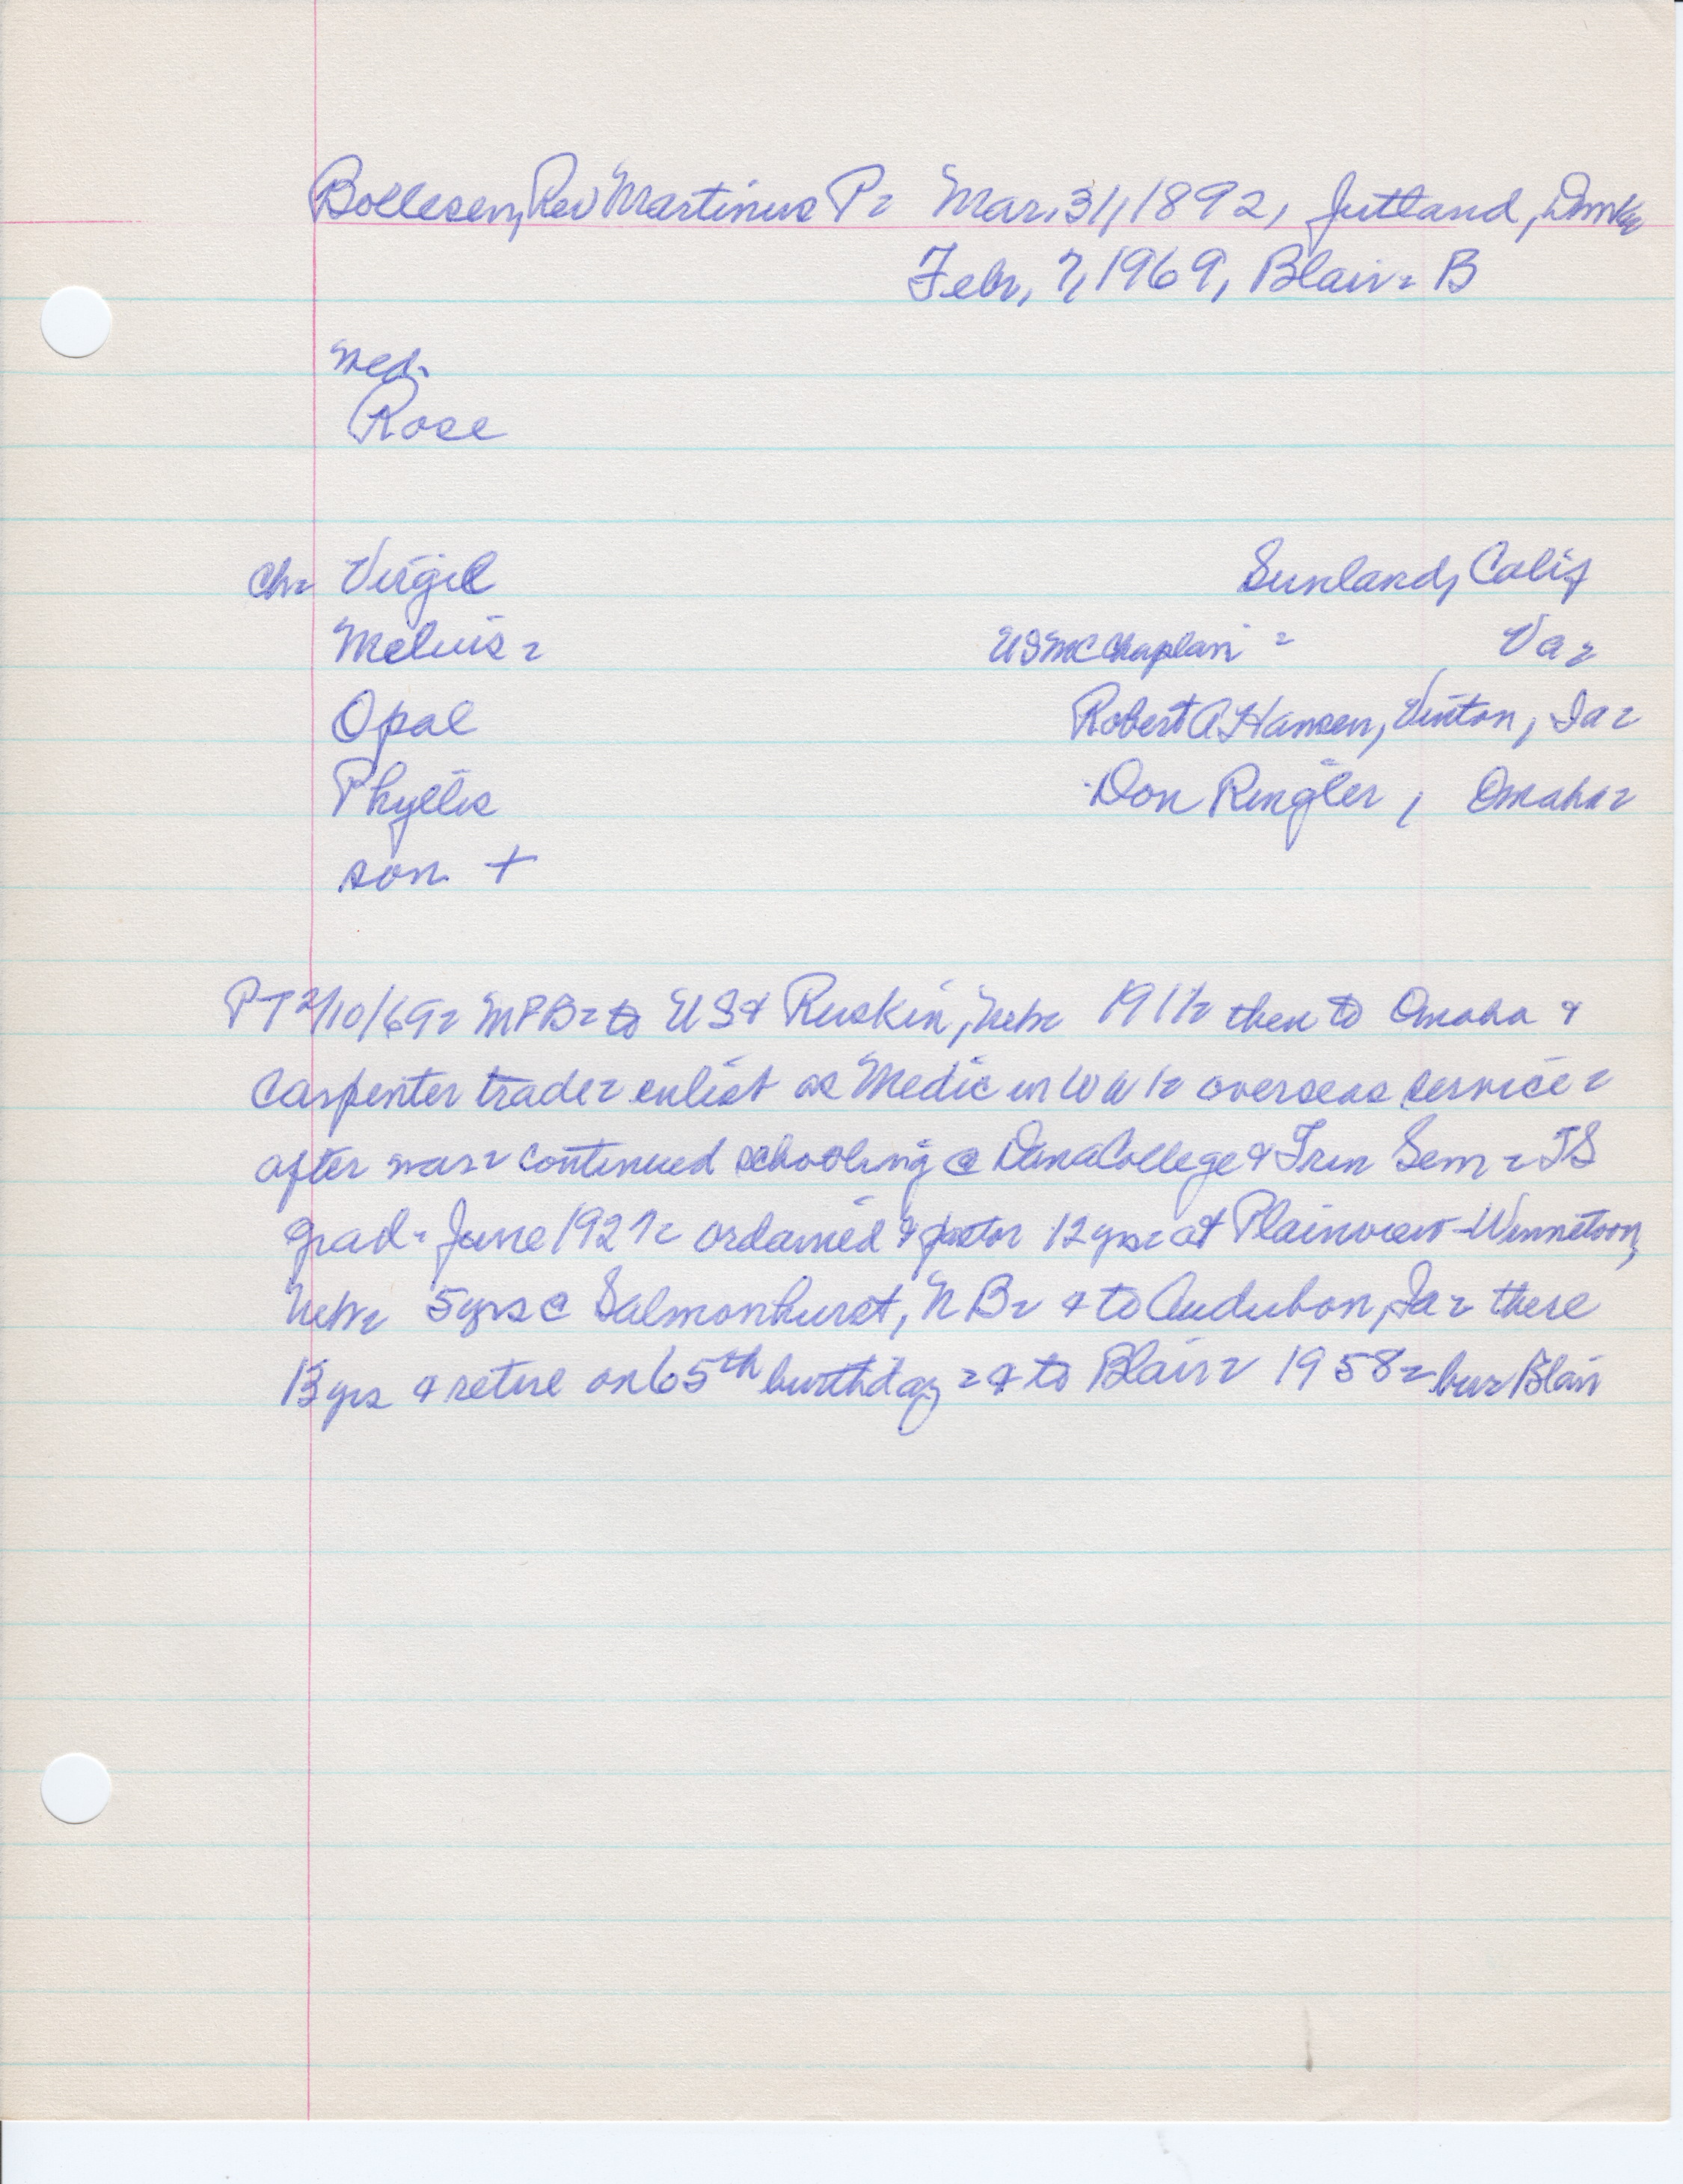 Bollesen, Rev Martinus P= Mar. 31, 1892, Jutland, Dmk
Febr, 7, 1969, Blair= B
med.
Rose
ch= Virgil Sunland, Calif
Melvis= USMC Chaplain = Va=
Opal Robert A Hansen, Vinton, Ia=
Phyllis Don Ringler, Omaha=
son +
PT 2/10/69= MPB= to US & Ruskin, Nebr 1911= then to Omaha &
Carpenter trade= enlist as Medic in WW 1= overseas service=
after war= continued schooling @ Dana College & Trin Sem= TS
grad= June 1927= ordained & pastor 12 yrs= at Plainview-Winnetoon,
Nebr 5 yrs @ Salmonhurst, N B= & to Audubon, Ia= there
13 yrs & retire on 65th birthday = & to Blair= 1958= bur Blair